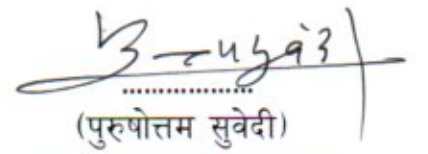 .................
(पुरुषोत्तम सुवेदी)